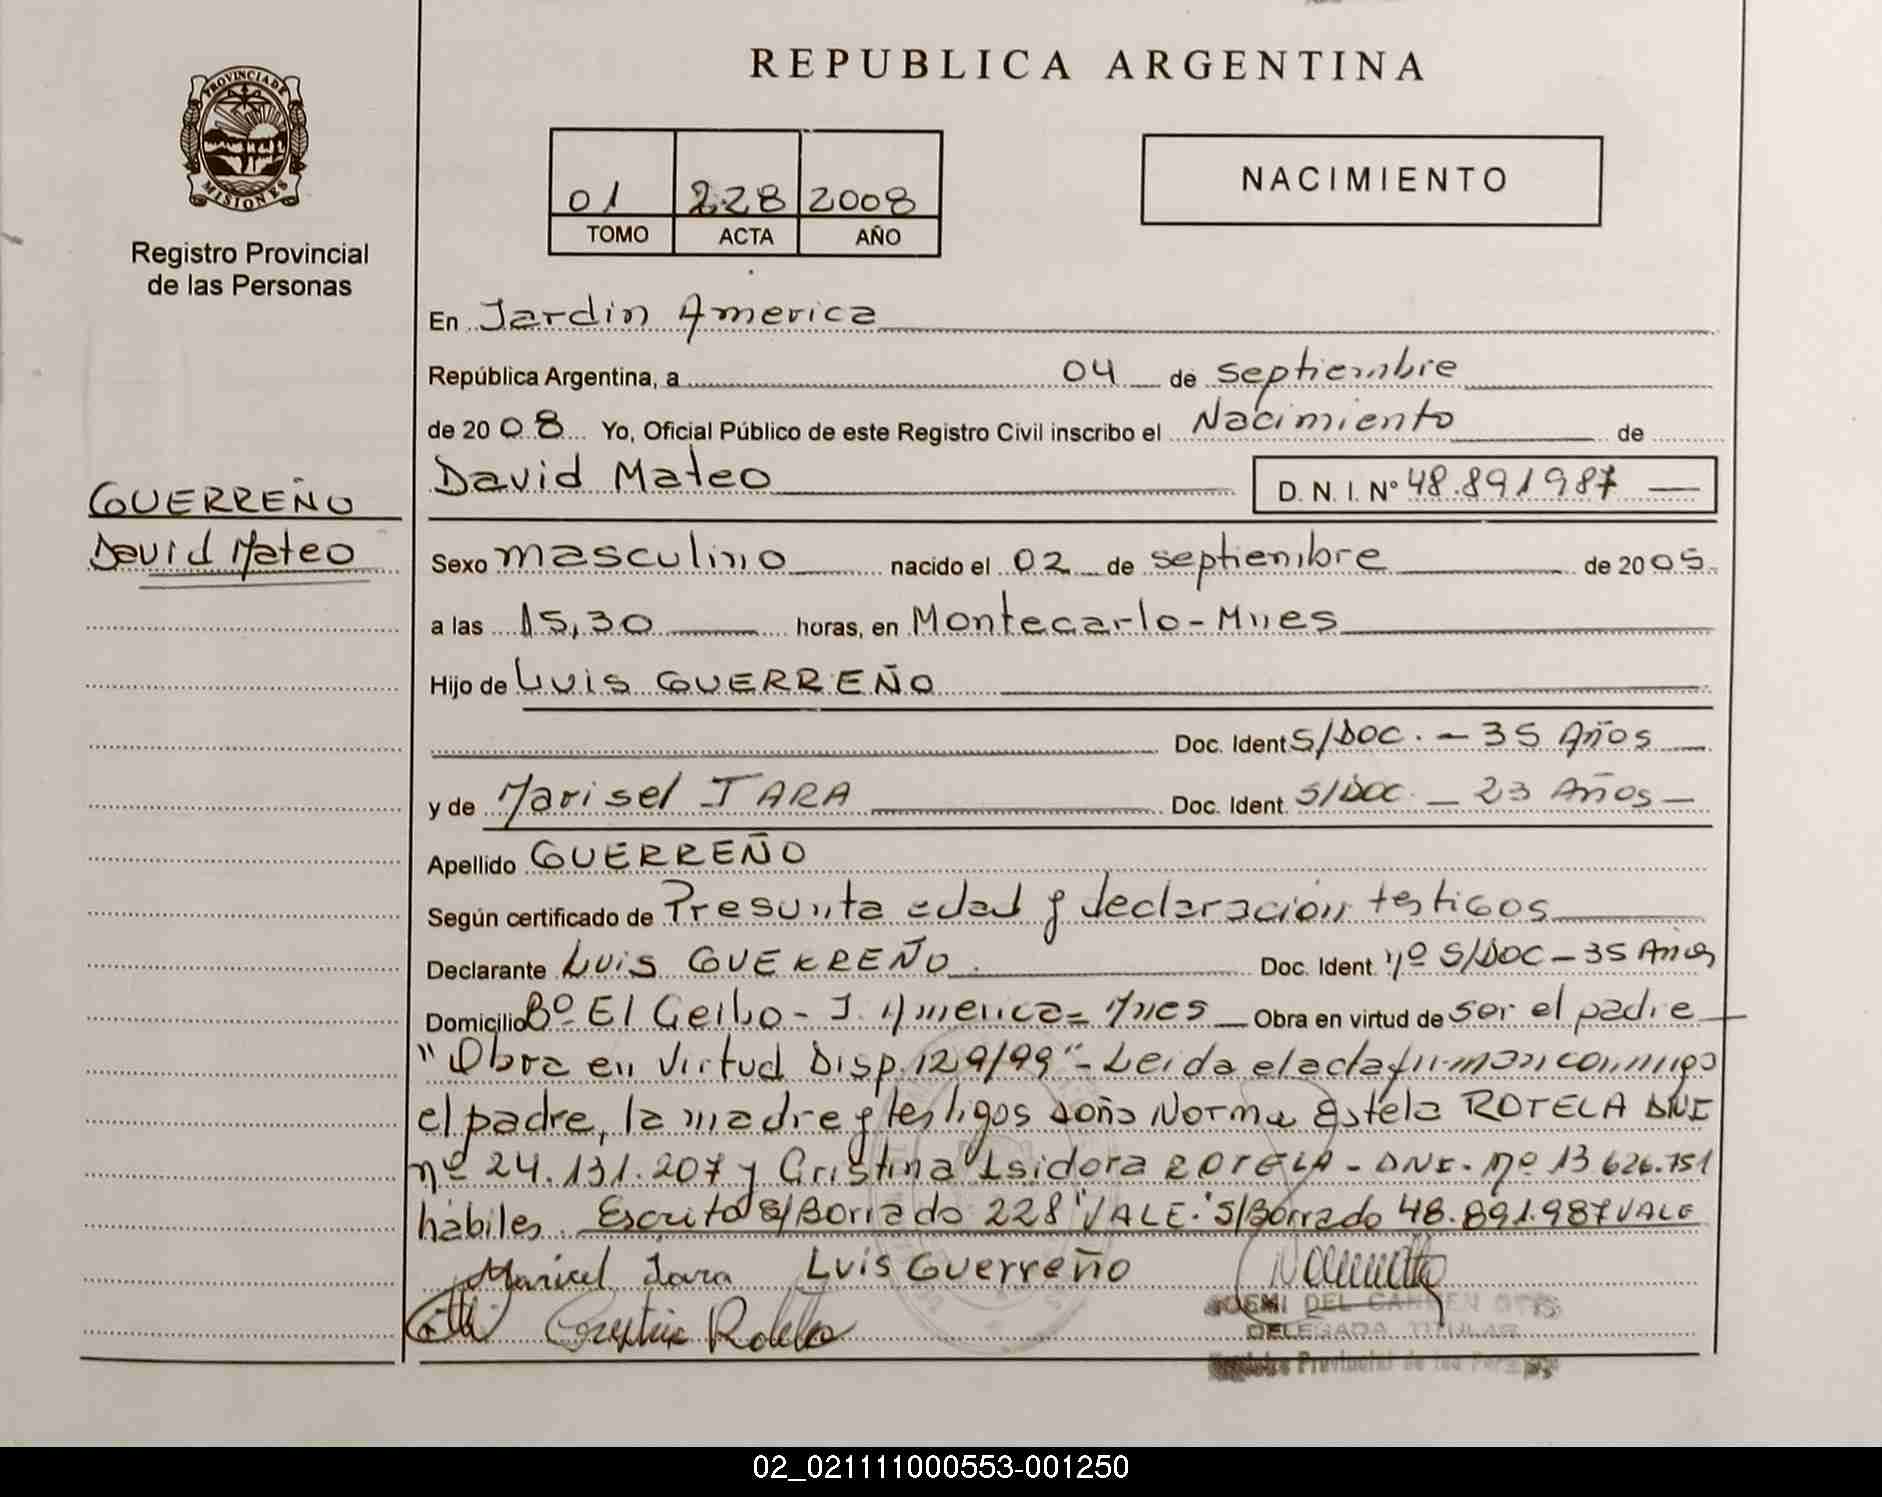 REPUBLICA ARGENTINA
PROVINCIA DE
MISIONES
Registro Provincial
de las Personas
01 228 2008
TOMO ACTA AÑO
NACIMIENTO
En Jardin America
República Argentina, a 04 de septiembre
de 2008 Yo, Oficial Público de este Registro Civil inscribo el Nacimiento de
David Mateo D. N. I. N° 48.891987
GUERREÑO
David Mateo
Sexo masculino nacido el 02 de septiembre de 2005
a las 15,30 horas, en Montecarlo - Mnes
Hijo de Luis GUERREÑO
Doc. Ident S/DOC. - 35 Años
y de Marisel JARA Doc. Ident. S/DOC. - 23 Años -
Apellido GUERREÑO
Según certificado de Presunta edad y declaración testigos
Declarante Luis GUERREÑO Doc. Ident. nº S/DOC - 35 Años
Domicilio Bº El Ceibo - J. America - Mnes Obra en virtud de ser el padre
"Obra en virtud Disp. 129/99" - Leida el acta firman conmigo
el padre, la madre y testigos doña Norma Estela ROTELA DNI
nº 24.131.207 y Cristina Isidora ROTELA - DNI. nº 13 626.751
habiles. Escrito s/Borrado 228 "VALE." S/Borrado 48.891.987 VALE
Maricel Jara Luis Guerreño
NOEMI DEL CARMEN
DELEGADA TITULAR
Registro Provincial de las Personas
02_021111000553-001250